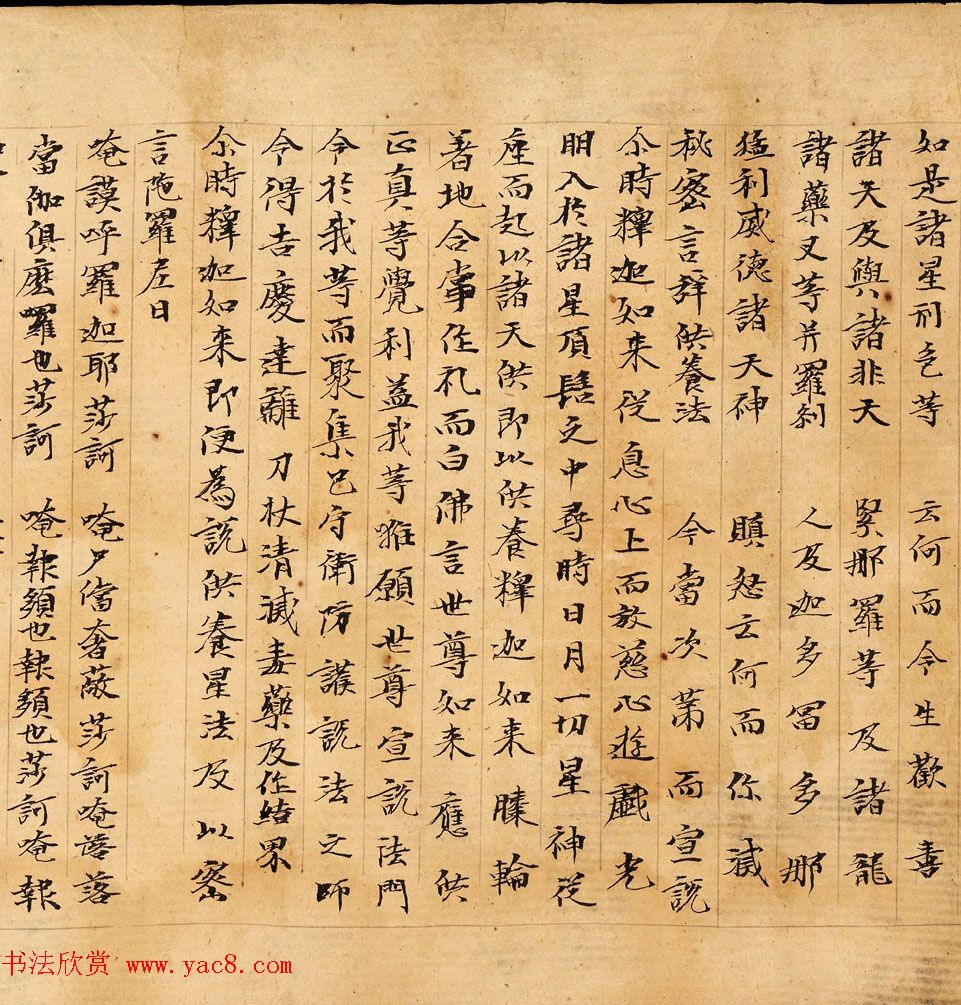 如是諸星刑色等　云何而令生歡喜
諸天及與諸非天　緊那羅等及諸龍
諸藥叉等并羅刹　人及迦多冨多那
猛利威德諸天神　瞋怒云何而你滅
秘密言辞供養法　今當次第而宣說
尒時釋迦如来従息心上而放慈心遊戲光
明入於諸星頂髻之中尋時日月一切星神従
座而起以諸天供即以供養釋迦如来膝輪
著地合掌作礼而白佛言世尊如来應供
正真等覺利益我等唯願世尊宣說法門
令於我等而聚集已守衛防護說法之師
令得吉慶達離刀杖清滅毒藥及作結界
尒時釋迦如来即便為說供養星法及以密
言陁羅尼曰
唵謨呼羅迦耶莎訶　唵尸儅奢蔽莎訶唵落
當伽俱麼囉也莎訶　唵報頞也報頞也莎訶唵報
书法欣赏 www.yac8.com